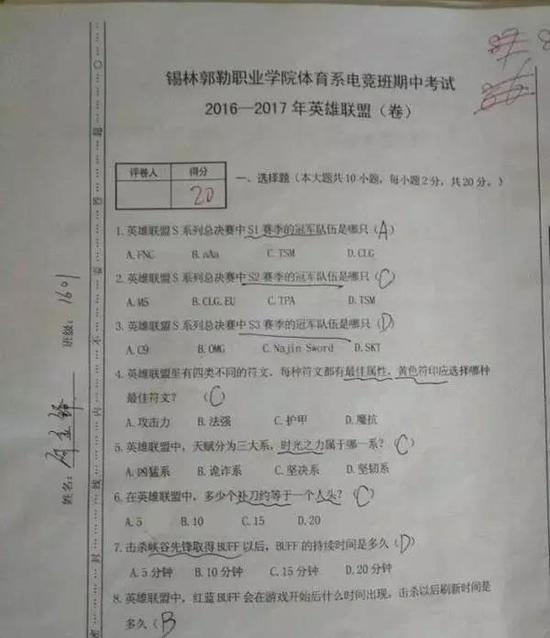 锡林郭勒职业学院体育系电竞班期中考试
2016—2017年英雄联盟（卷）
评卷人 得分
20
一、选择题（本大题共10小题，每小题2分，共20分。）
1. 英雄联盟 S 系列总决赛中 S1 赛季的冠军队伍是哪只（A）
A. FNC B. aAa C. TSM D. CLG
2. 英雄联盟 S 系列总决赛中 S2 赛季的冠军队伍是哪只（C）
A. M5 B. CLG. EU C. TPA D. TSM
3. 英雄联盟 S 系列总决赛中 S3 赛季的冠军队伍是哪只（D）
A. C9 B. OMG C. Najin Sword D. SKT
4. 英雄联盟里有四类不同的符文，每种符文都有最佳属性，黄色符印应选择哪种
最佳符文？ （C）
A. 攻击力 B. 法强 C. 护甲 D. 魔抗
5. 英雄联盟中，天赋分为三大系，时光之力属于哪一系？（C）
A. 凶猛系 B. 诡诈系 C. 坚决系 D. 坚韧系
6. 在英雄联盟中，多少个补刀约等于一个人头？（C）
A. 5 B. 10 C. 15 D. 20
7. 击杀峡谷先锋取得 BUFF 以后，BUFF 的持续时间是多久（D）
A. 5 分钟 B. 10 分钟 C. 15 分钟 D. 20 分钟
8. 英雄联盟中，红蓝 BUFF 会在游戏开始后什么时间出现，击杀以后刷新时间是
多久（B
班级：1601
姓名：
题 答 要 不 内 线 封 密